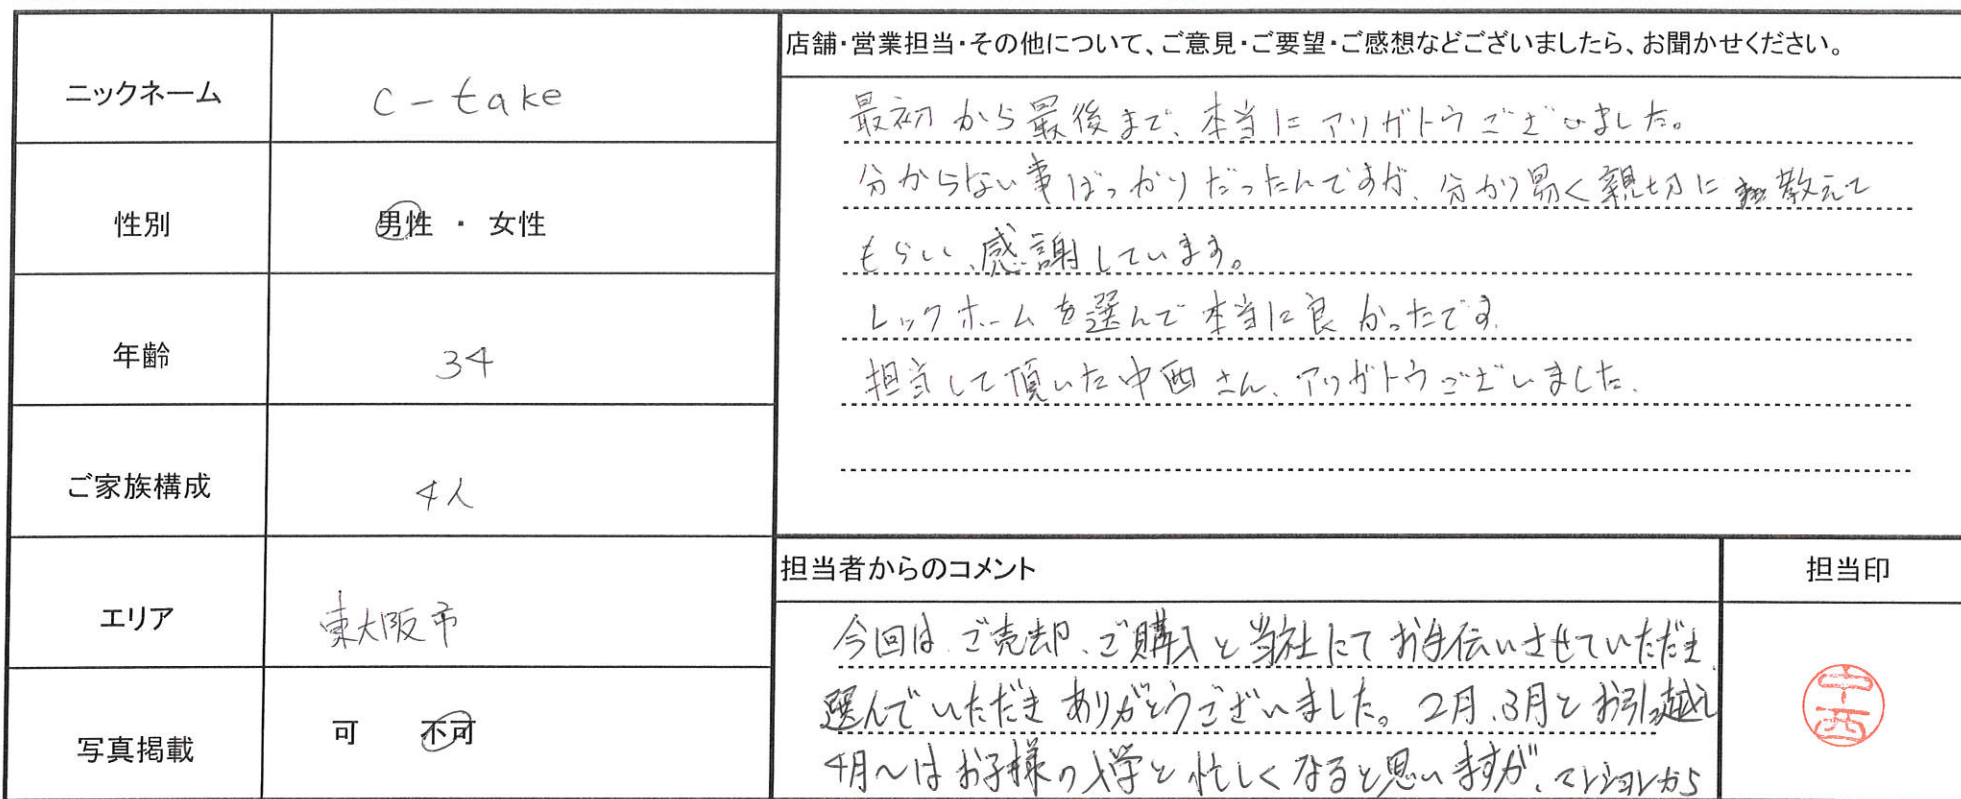 ニックネーム
c-take
性別
男性 ・ 女性
年齢
34
ご家族構成
4人
エリア
東大阪市
写真掲載
可 不可
店舗・営業担当・その他について、ご意見・ご要望・ご感想などございましたら、お聞かせください。
最初から最後まで、本当にアリガトウございました。
分からない事ばっかりだったんですが、分かり易く親切に教えて
もらい、感謝しています。
レックホームを選んで本当に良かったです。
担当して頂いた中西さん、アリガトウございました。
担当者からのコメント
今回は、ご売却、ご購入と当社にてお手伝いさせていただき、
選んでいただきありがとうございました。2月、3月とお引っ越し
4月〜はお子様の入学と忙しくなると思いますが、マンションから
担当印
中西